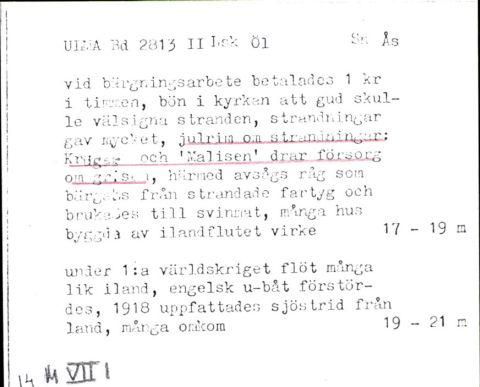 ULMA Bd 2813 II Lsk Öl Sn Ås
vid bärgningsarbete betalades 1 kr
i timmen, bön i kyrkan att gud skul-
le välsigna stranden, strandningar
gav mycket, julrim om strandningar:
Krüger och 'Malisen' drar försorg
om grisen, härmed avsågs råg som
bärgats från strandade fartyg och
brukades till svinmat, många hus
byggda av ilandflutet virke 17 - 19 m
under 1:a världskriget flöt många
lik iland, engelsk u-båt förstör-
des, 1918 uppfattades sjöstrid från
land, många omkom 19 - 21 m
14 M VII 1